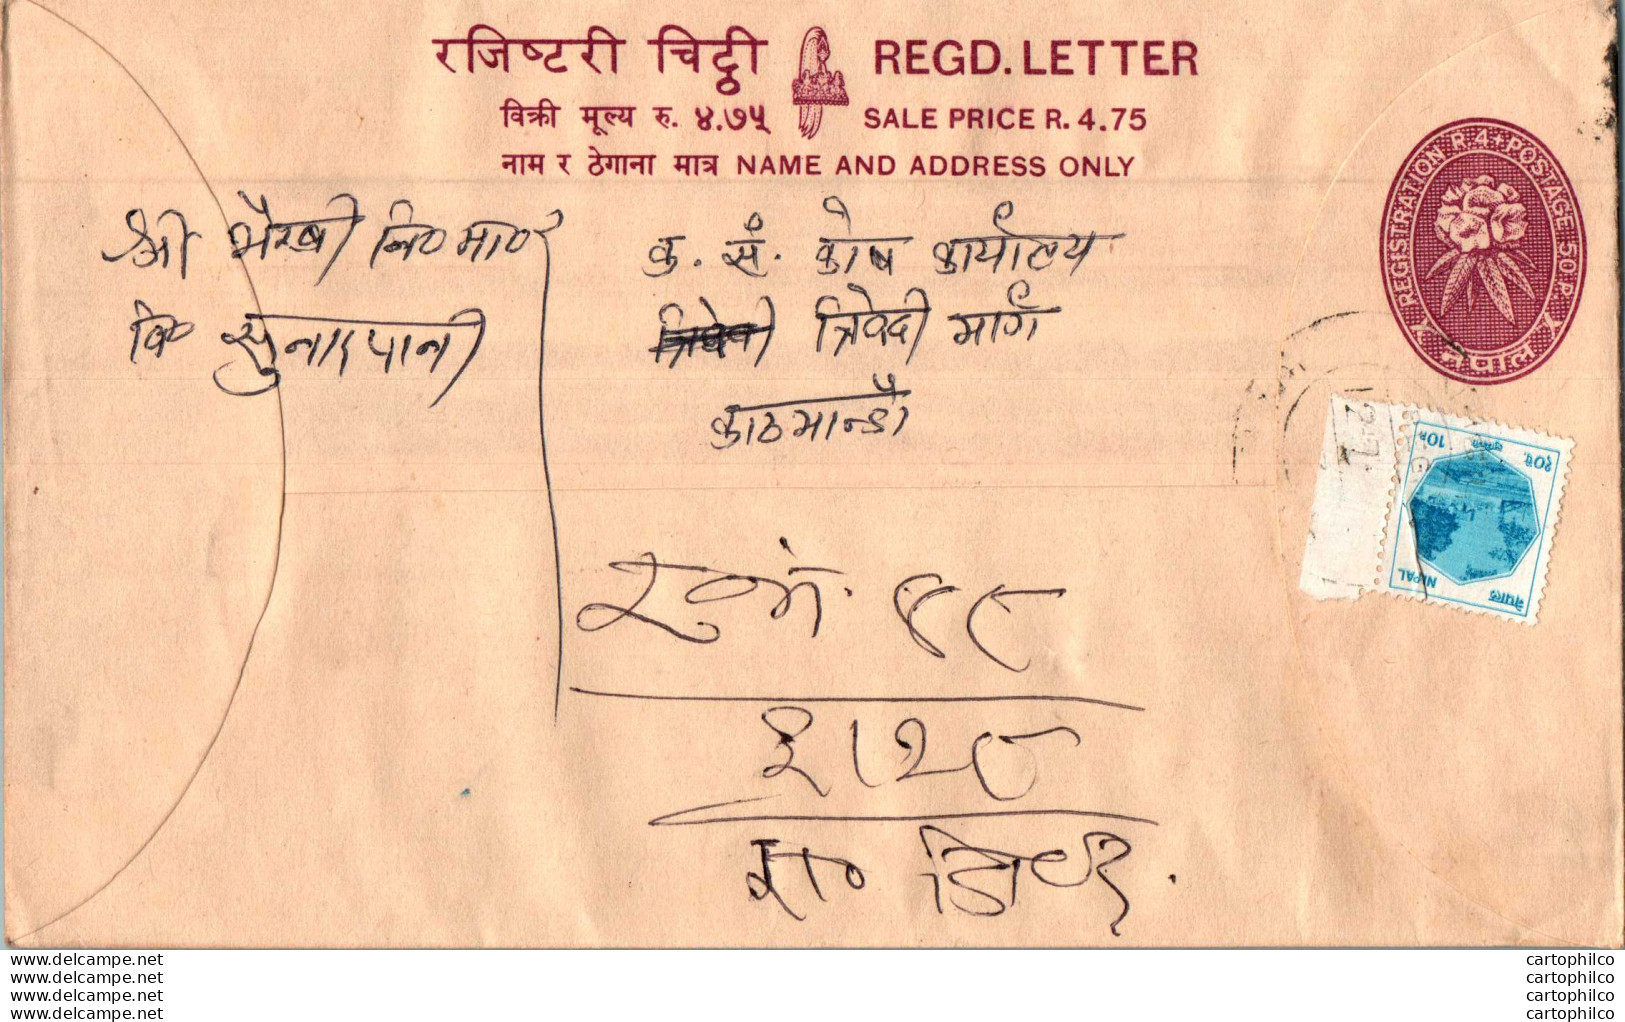 रजिष्टरी चिट्ठी REGD. LETTER
विक्री मूल्य रु. ४.७५ SALE PRICE R. 4.75
नाम र ठेगाना मात्र NAME AND ADDRESS ONLY
REGISTRATION R 4 + POSTAGE 50 P.
नेपाल
श्री भैरवी नि०मा०
वि० सुनारपानी
क. सं. कोष कार्यालय
त्रिवेदी मार्ग
काठमान्डौ
10P.
१०पै.
NEPAL
नेपाल
र०नं. ४९
www.delcampe.net cartophilco
www.delcampe.net cartophilco
www.delcampe.net cartophilco
www.delcampe.net cartophilco